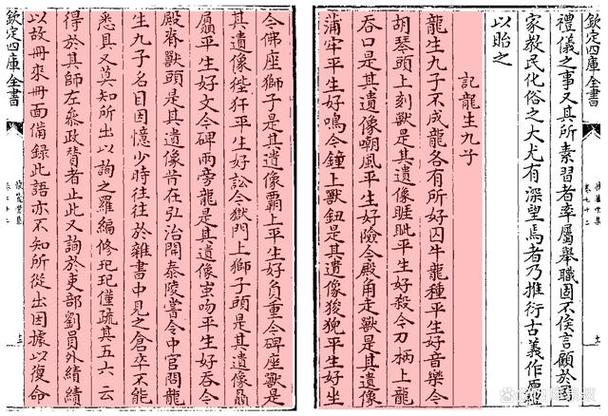 欽定四庫全書
禮儀之事又其所素習者率屬舉職固不俟言顧於國
家教民化俗之大尤有深望焉者乃推衍古義作
以貽之
記龍生九子
龍生九子不成龍各有所好囚牛龍種平生好音樂今
胡琴頭上刻獸是其遺像睚眦平生好殺今刀柄上龍
吞口是其遺像嘲風平生好險今殿角走獸是其遺像
蒲牢平生好鳴今鐘上獸鈕是其遺像狻猊平生好坐
今佛座獅子是其遺像霸上平生好負重今碑座獸是
其遺像狴犴平生好訟今獄門上獅子頭是其遺像贔
屭平生好文今碑兩旁龍是其遺像蚩吻平生好吞今
殿脊獸頭是其遺像昔在弘治間泰陵嘗令中官問龍
生九子名目因憶少時往往於雜書中見之倉卒不能
悉具又莫知所出以詢之羅編修玘玘僅疏其五六云
得於其師左叅政贊者止此又詢於吏部劉員外績績
以故冊來冊面備錄此語亦不知所從出因據以復命
欽定四庫全書